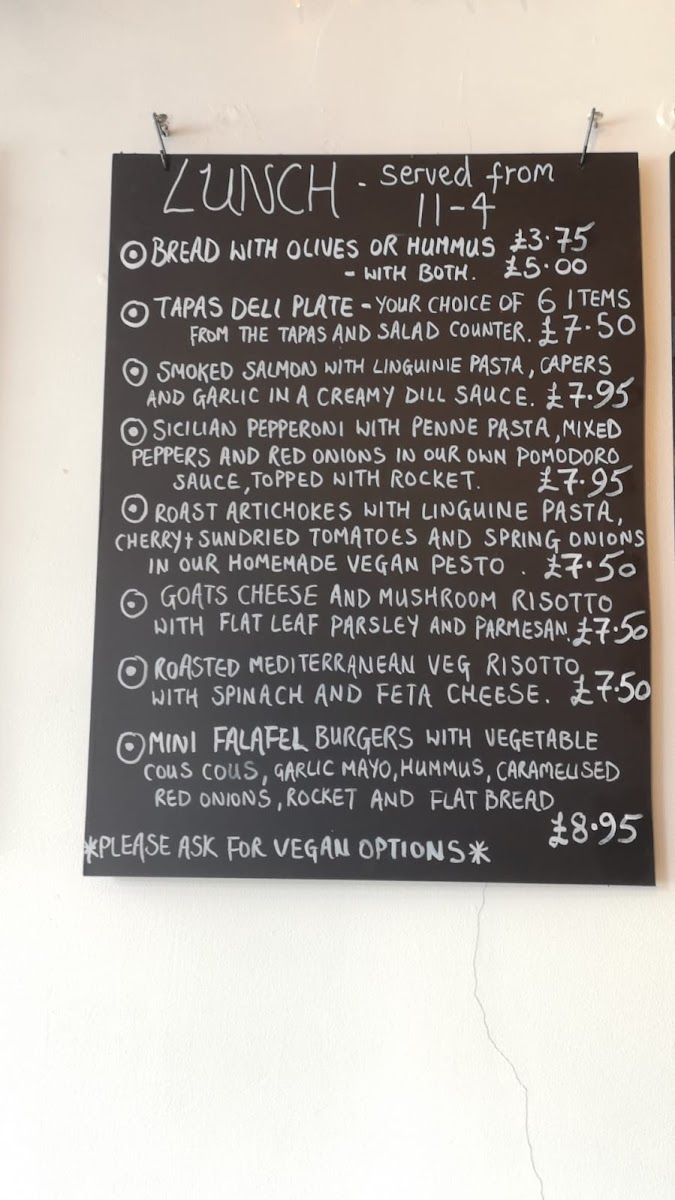 LUNCH - served from
11-4
BREAD WITH OLIVES OR HUMMUS £3.75
- WITH BOTH. £5.00
TAPAS DELI PLATE - YOUR CHOICE OF 6 ITEMS
FROM THE TAPAS AND SALAD COUNTER. £7.50
SMOKED SALMON WITH LINGUINIE PASTA, CAPERS
AND GARLIC IN A CREAMY DILL SAUCE. £7.95
SICILIAN PEPPERONI WITH PENNE PASTA, MIXED
PEPPERS AND RED ONIONS IN OUR OWN POMODORO
SAUCE, TOPPED WITH ROCKET. £7.95
ROAST ARTICHOKES WITH LINGUINE PASTA,
CHERRY + SUNDRIED TOMATOES AND SPRING ONIONS
IN OUR HOMEMADE VEGAN PESTO. £7.50
GOATS CHEESE AND MUSHROOM RISOTTO
WITH FLAT LEAF PARSLEY AND PARMESAN. £7.50
ROASTED MEDITERRANEAN VEG RISOTTO
WITH SPINACH AND FETA CHEESE. £7.50
MINI FALAFEL BURGERS WITH VEGETABLE
COUS COUS, GARLIC MAYO, HUMMUS, CARAMELISED
RED ONIONS, ROCKET AND FLAT BREAD
£8.95
*PLEASE ASK FOR VEGAN OPTIONS*